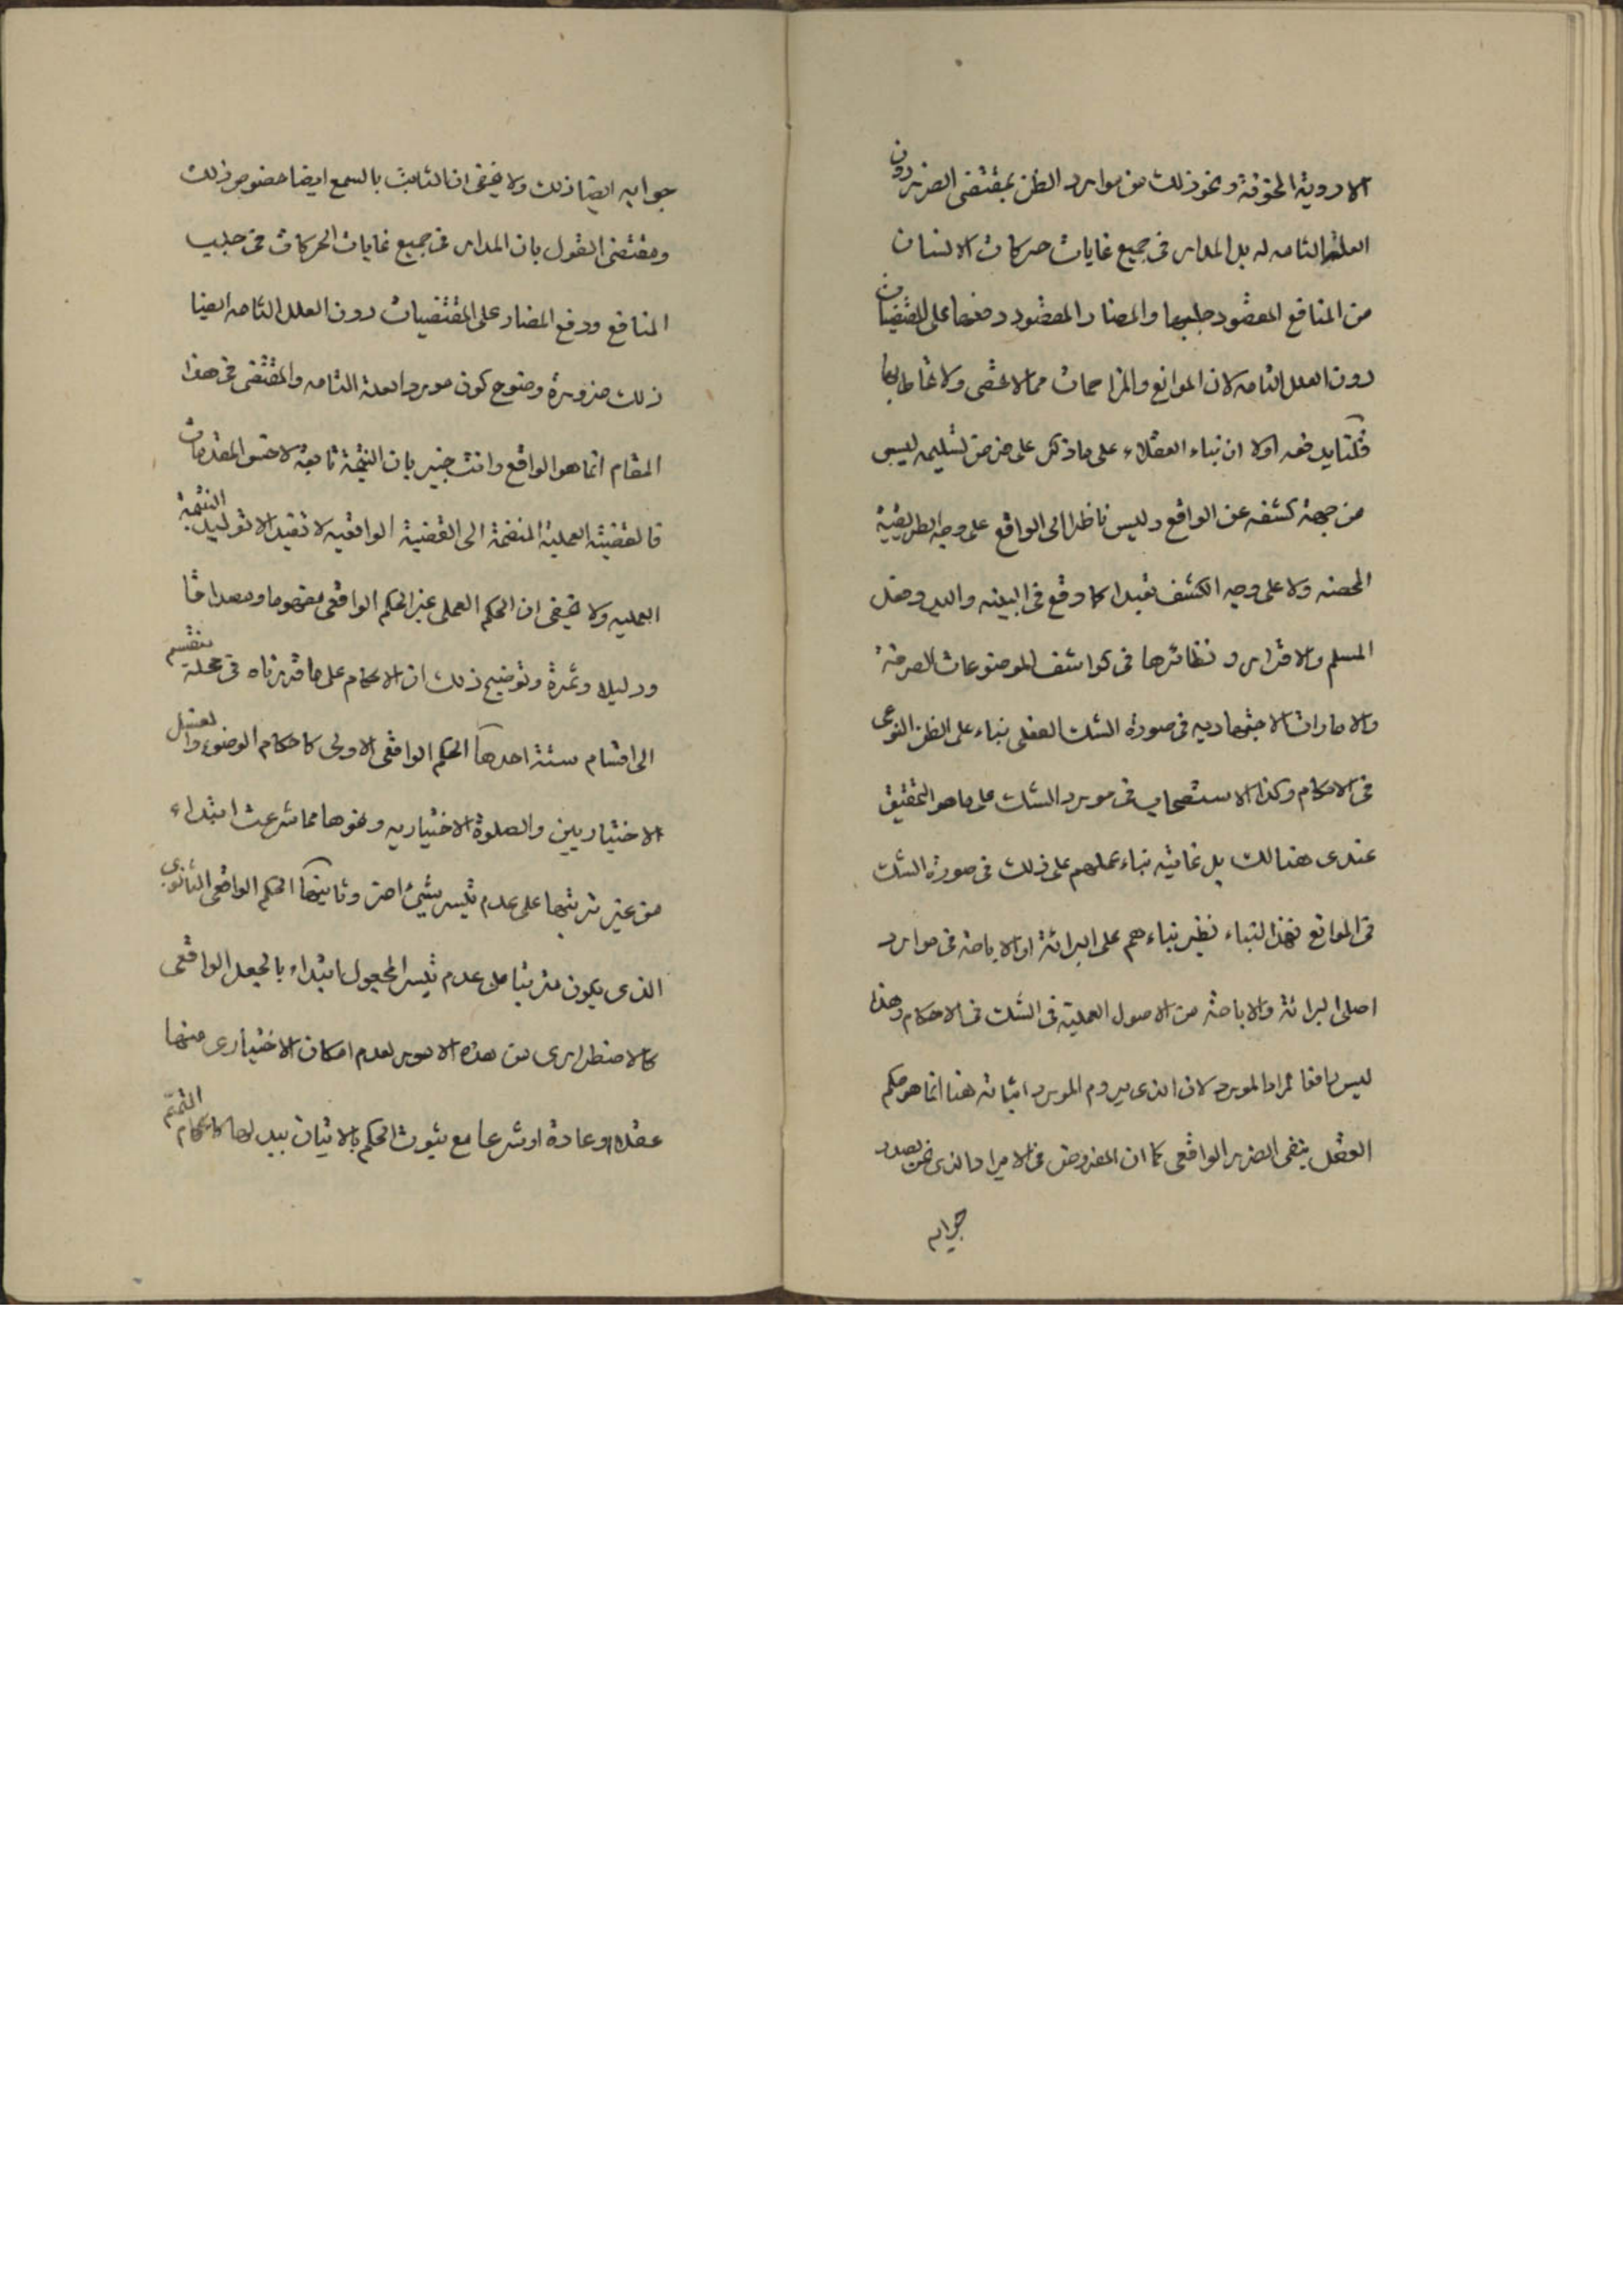 الادوية المخوفة ونحو ذلك من موارد الظن بمقتضى الضرر دون
العلة التامه له بل المدار فى جميع غايات حركات الانسان
من المنافع المقصود جلبها والمضار المقصود دفعها على المقتضيات
دون العلل التامه لان الموانع والمزاحمات مما لا تحصى ولا
اولا ان بناء العقلاء على ما ذكر على فرض تسليمه ليس
من جهة كشفه عن الواقع وليس ناظرا الى الواقع على وجه الطريقية
المحضه ولا على وجه الكشف تعبدا كما وقع فى البينه واليد وفعل
المسلم والاقرار ونظائرها فى كواشف الموضوعات الصرفة
والامارات الاجتهاديه فى صورة الشك الفعلى بناء على الظن النوعى
فى الاحكام وكذا الاستصحاب فى مورد الشك على ما هو التحقيق
عندى هنالك بل غايته بناء عملهم على ذلك فى صورة الشك
فى الموانع فهذا البناء نظير بناءهم على البرائة او الاباحة فى موارد
اصلى البرائة والاباحة من الاصول العملية فى الشك فى الاحكام وهذا
ليس نافعا لمراد المورد لان الذى يروم المورد اثباته هنا انما هو حكم
العقل بنفى الضرر الواقعى كما ان المفروض فى الايراد الذى نحن بصدد
جوابه
جوابه ايضا ذلك ولا يخفى ان الثابت بالسمع ايضا خصوص ذلك
ومقتضى القول بان المدار فى جميع غايات الحركات فى جلب
المنافع ودفع المضار على المقتضيات دون العلل التامه ايضا
ذلك ضرورة وضوح كون مورد العلة التامه والمقتضى فى هذا
المقام انما هو الواقع وانت خبير بان النتيجة تابعة لاخس المقدمات
فالقضية العملية المنضمة الى القضية الواقعيه لا تفيد الا توليد النتيجة
العمليه ولا يخفى ان الحكم العملى غير الحكم الواقعى مفهوما ومصداقا
ودليلا وثمرة وتوضيح ذلك ان الاحكام على ما قررناه فى محله تنقسم
الى اقسام ستة احدها الحكم الواقعى الاولى كاحكام الوضوء والغسل
الاختياريين والصلوة الاختياريه ونحوها مما شرعت ابتداء
من غير ترتبها على عدم تيسر شيئ اخر وثانيها الحكم الواقعى الثانوى
الذى يكون مترتبا على عدم تيسر المجعول ابتداء بالجعل الواقعى
كالاضطرارى من هذه الامور لعدم امكان الاختيارى منها
عقلا او عادة او شرعا مع ثبوت الحكم بالاتيان ببدلها كاحكام التيمم